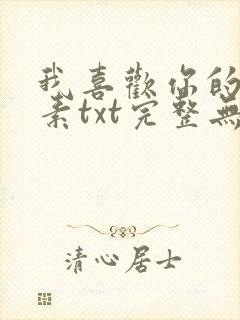 我喜歡你的
素txt完整無
清心居士